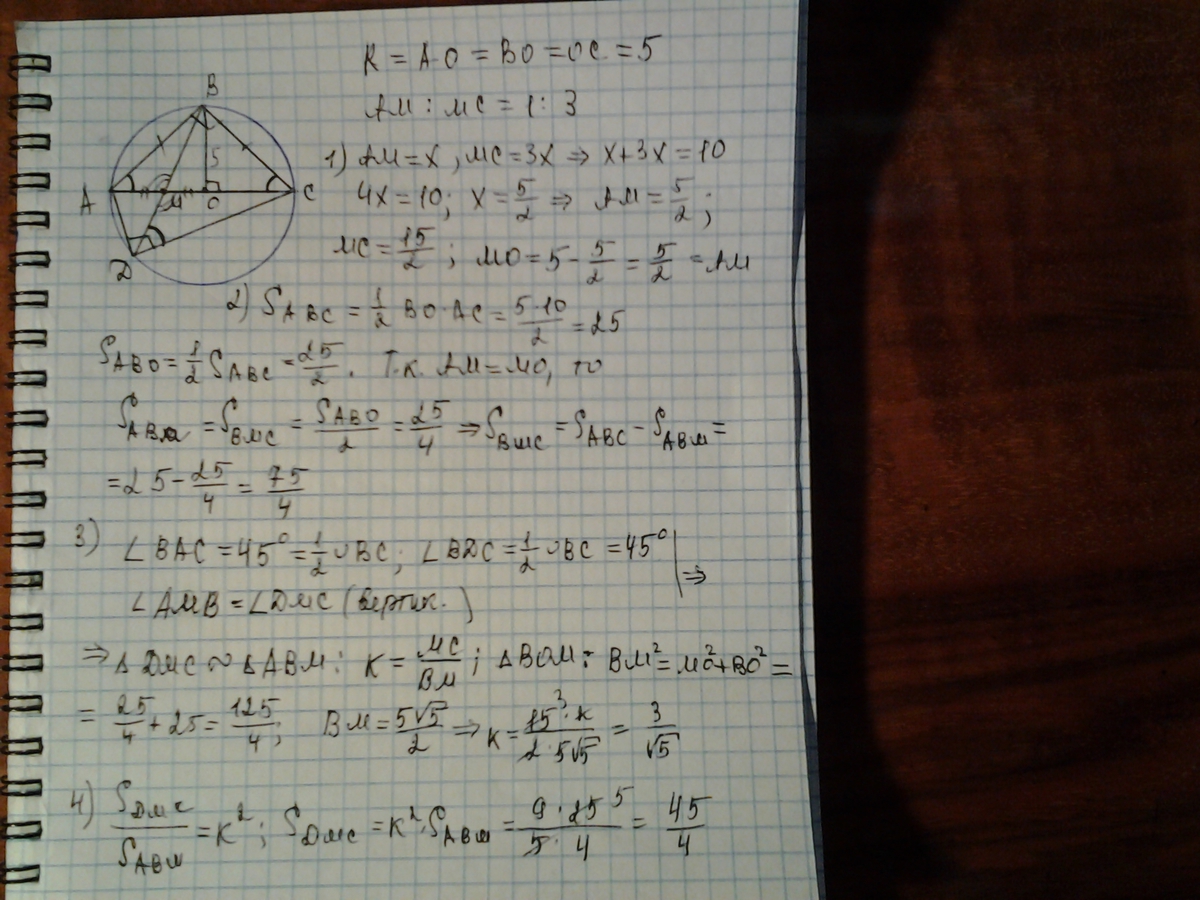 R = AO = BO = OC = 5
AM : MC = 1 : 3
B
5
A
M
O
C
D
1) AM = x, MC = 3x ⇒ x+3x = 10
4x = 10; x = 5/2 ⇒ AM = 5/2;
MC = 15/2; MO = 5 - 5/2 = 5/2 = AM
2) S_ABC = 1/2 BO·AC = 5·10/2 = 25
S_ABO = 1/2 S_ABC = 25/2. Т.к. AM = MO, то
S_ABM = S_BMC = S_ABO/2 = 25/4 ⇒ S_BMC = S_ABC - S_ABM =
= 25 - 25/4 = 75/4
3) ∠BAC = 45° = 1/2 ∪BC; ∠BDC = 1/2 ∪BC = 45° | ⇒
∠AMB = ∠DMC (вертик.)
⇒ △DMC ∾ △ABM: K = MC/BM; △BOM: BM² = MO² + BO² =
= 25/4 + 25 = 125/4; BM = 5√5/2 ⇒ K = 15³·2/2·5√5 = 3/√5
4) S_DMC/S_ABM = K²; S_DMC = K²·S_ABM = 9·25⁵/5·4 = 45/4